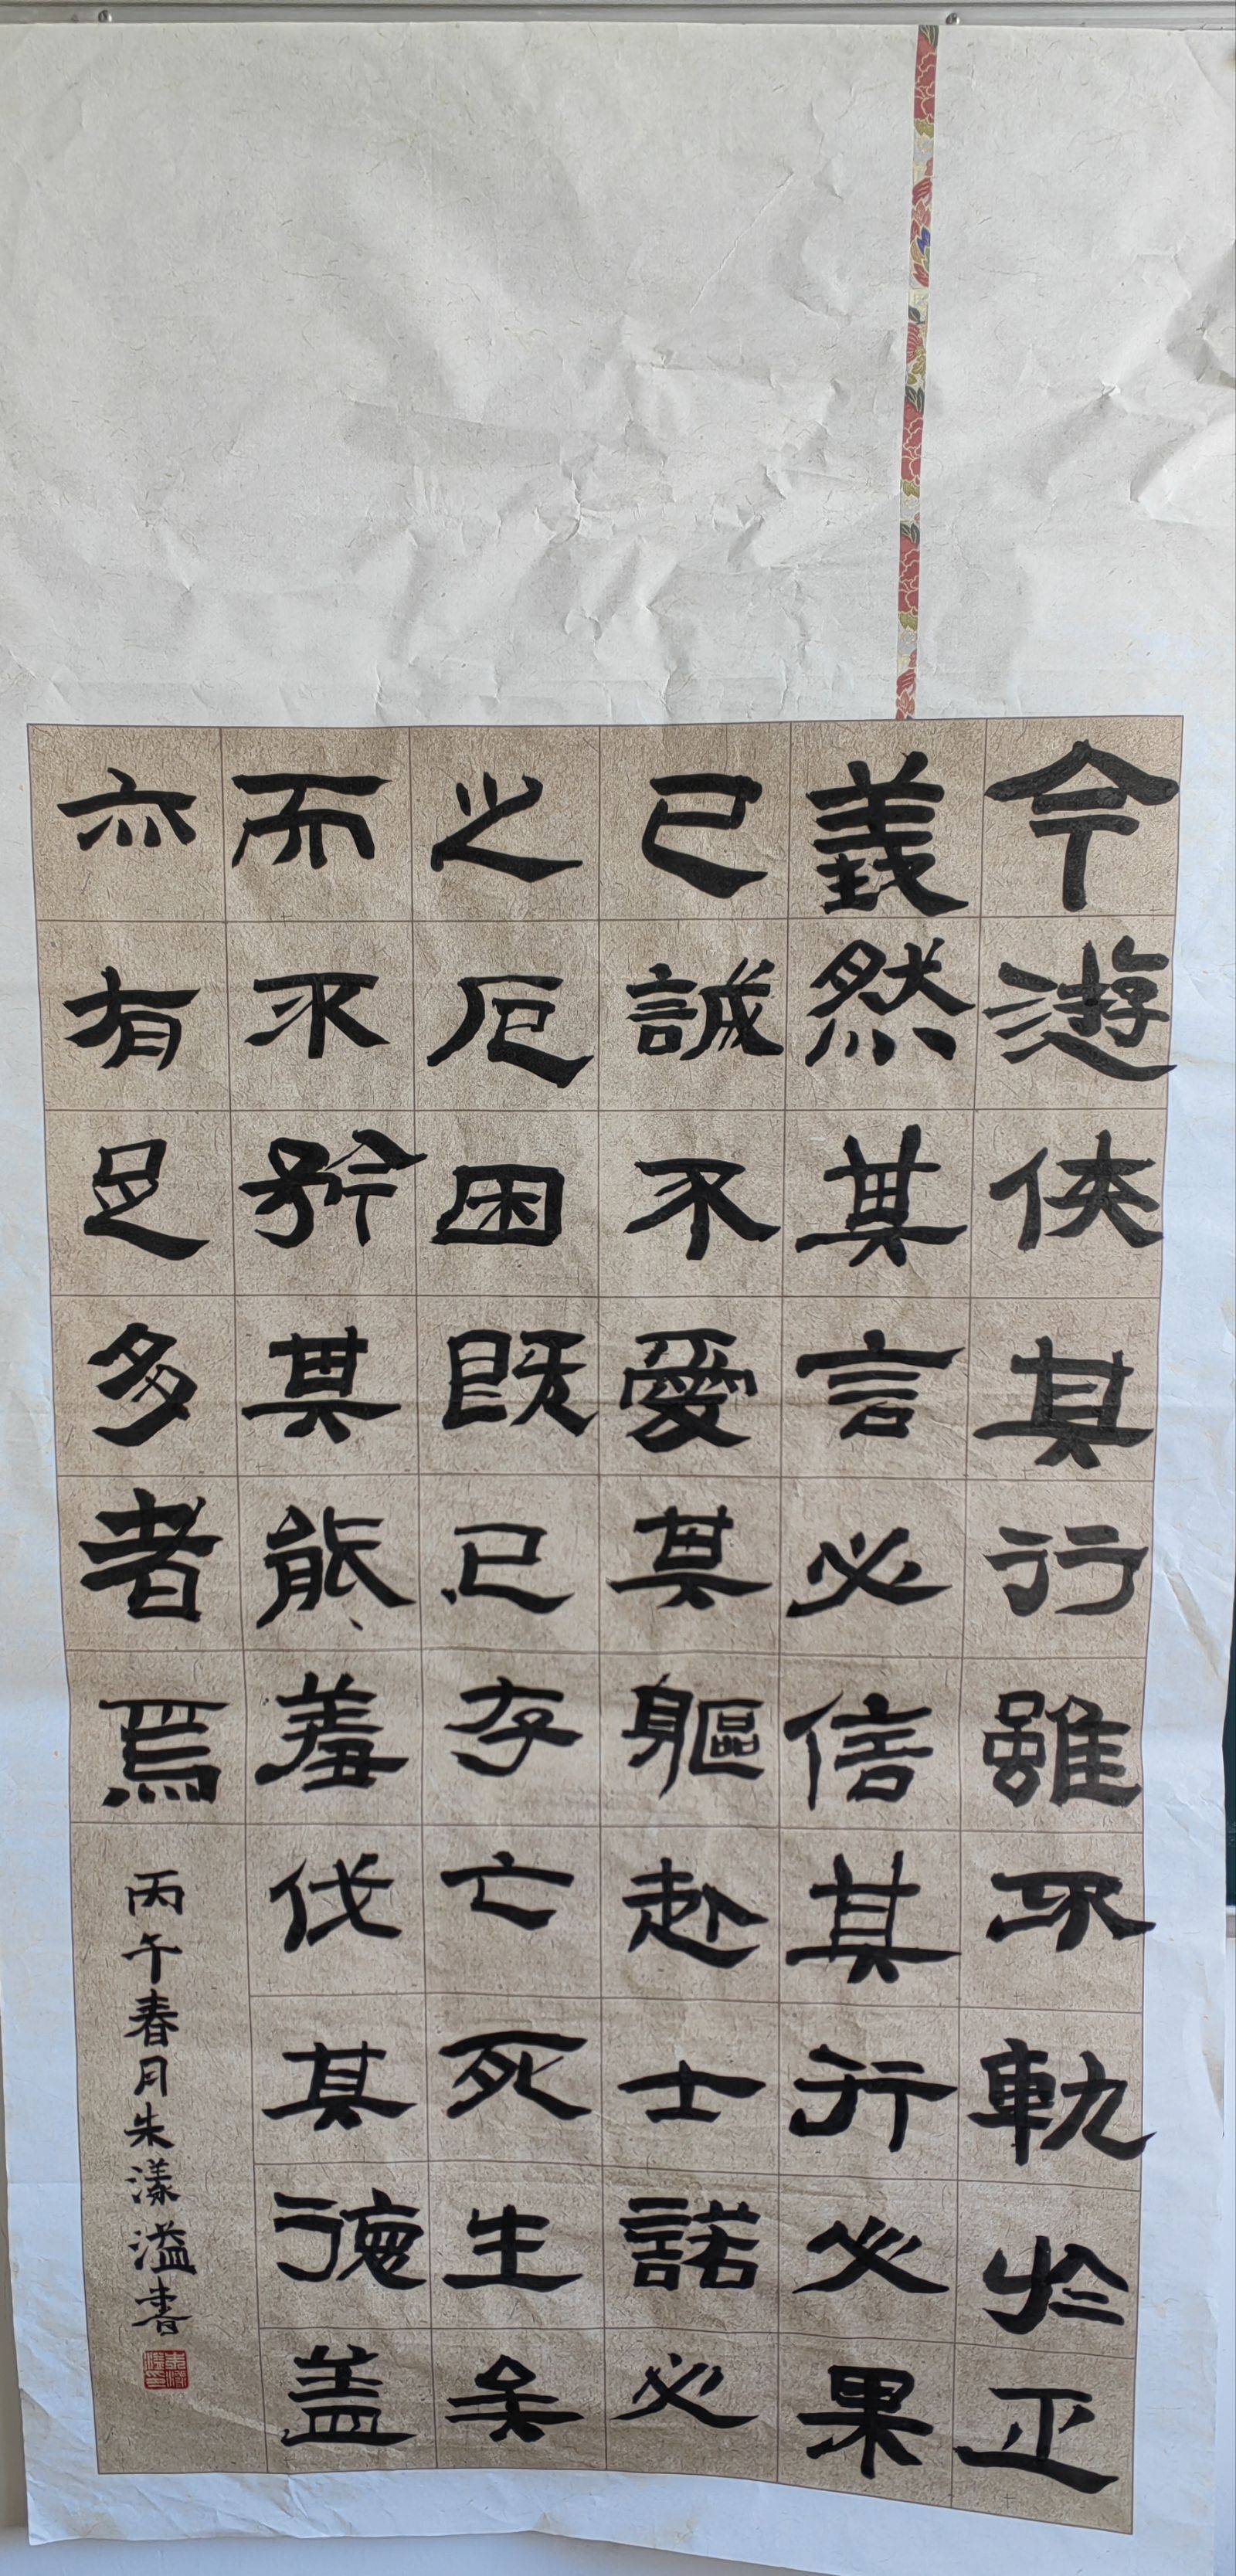 今遊侠其行雖不軌於正
義然其言必信其行必果
已誠不愛其軀赴士諾必
之厄困既已存亡死生矣
而不矜其能羞伐其德盖
亦有足多者焉
丙午春月朱漾溢書